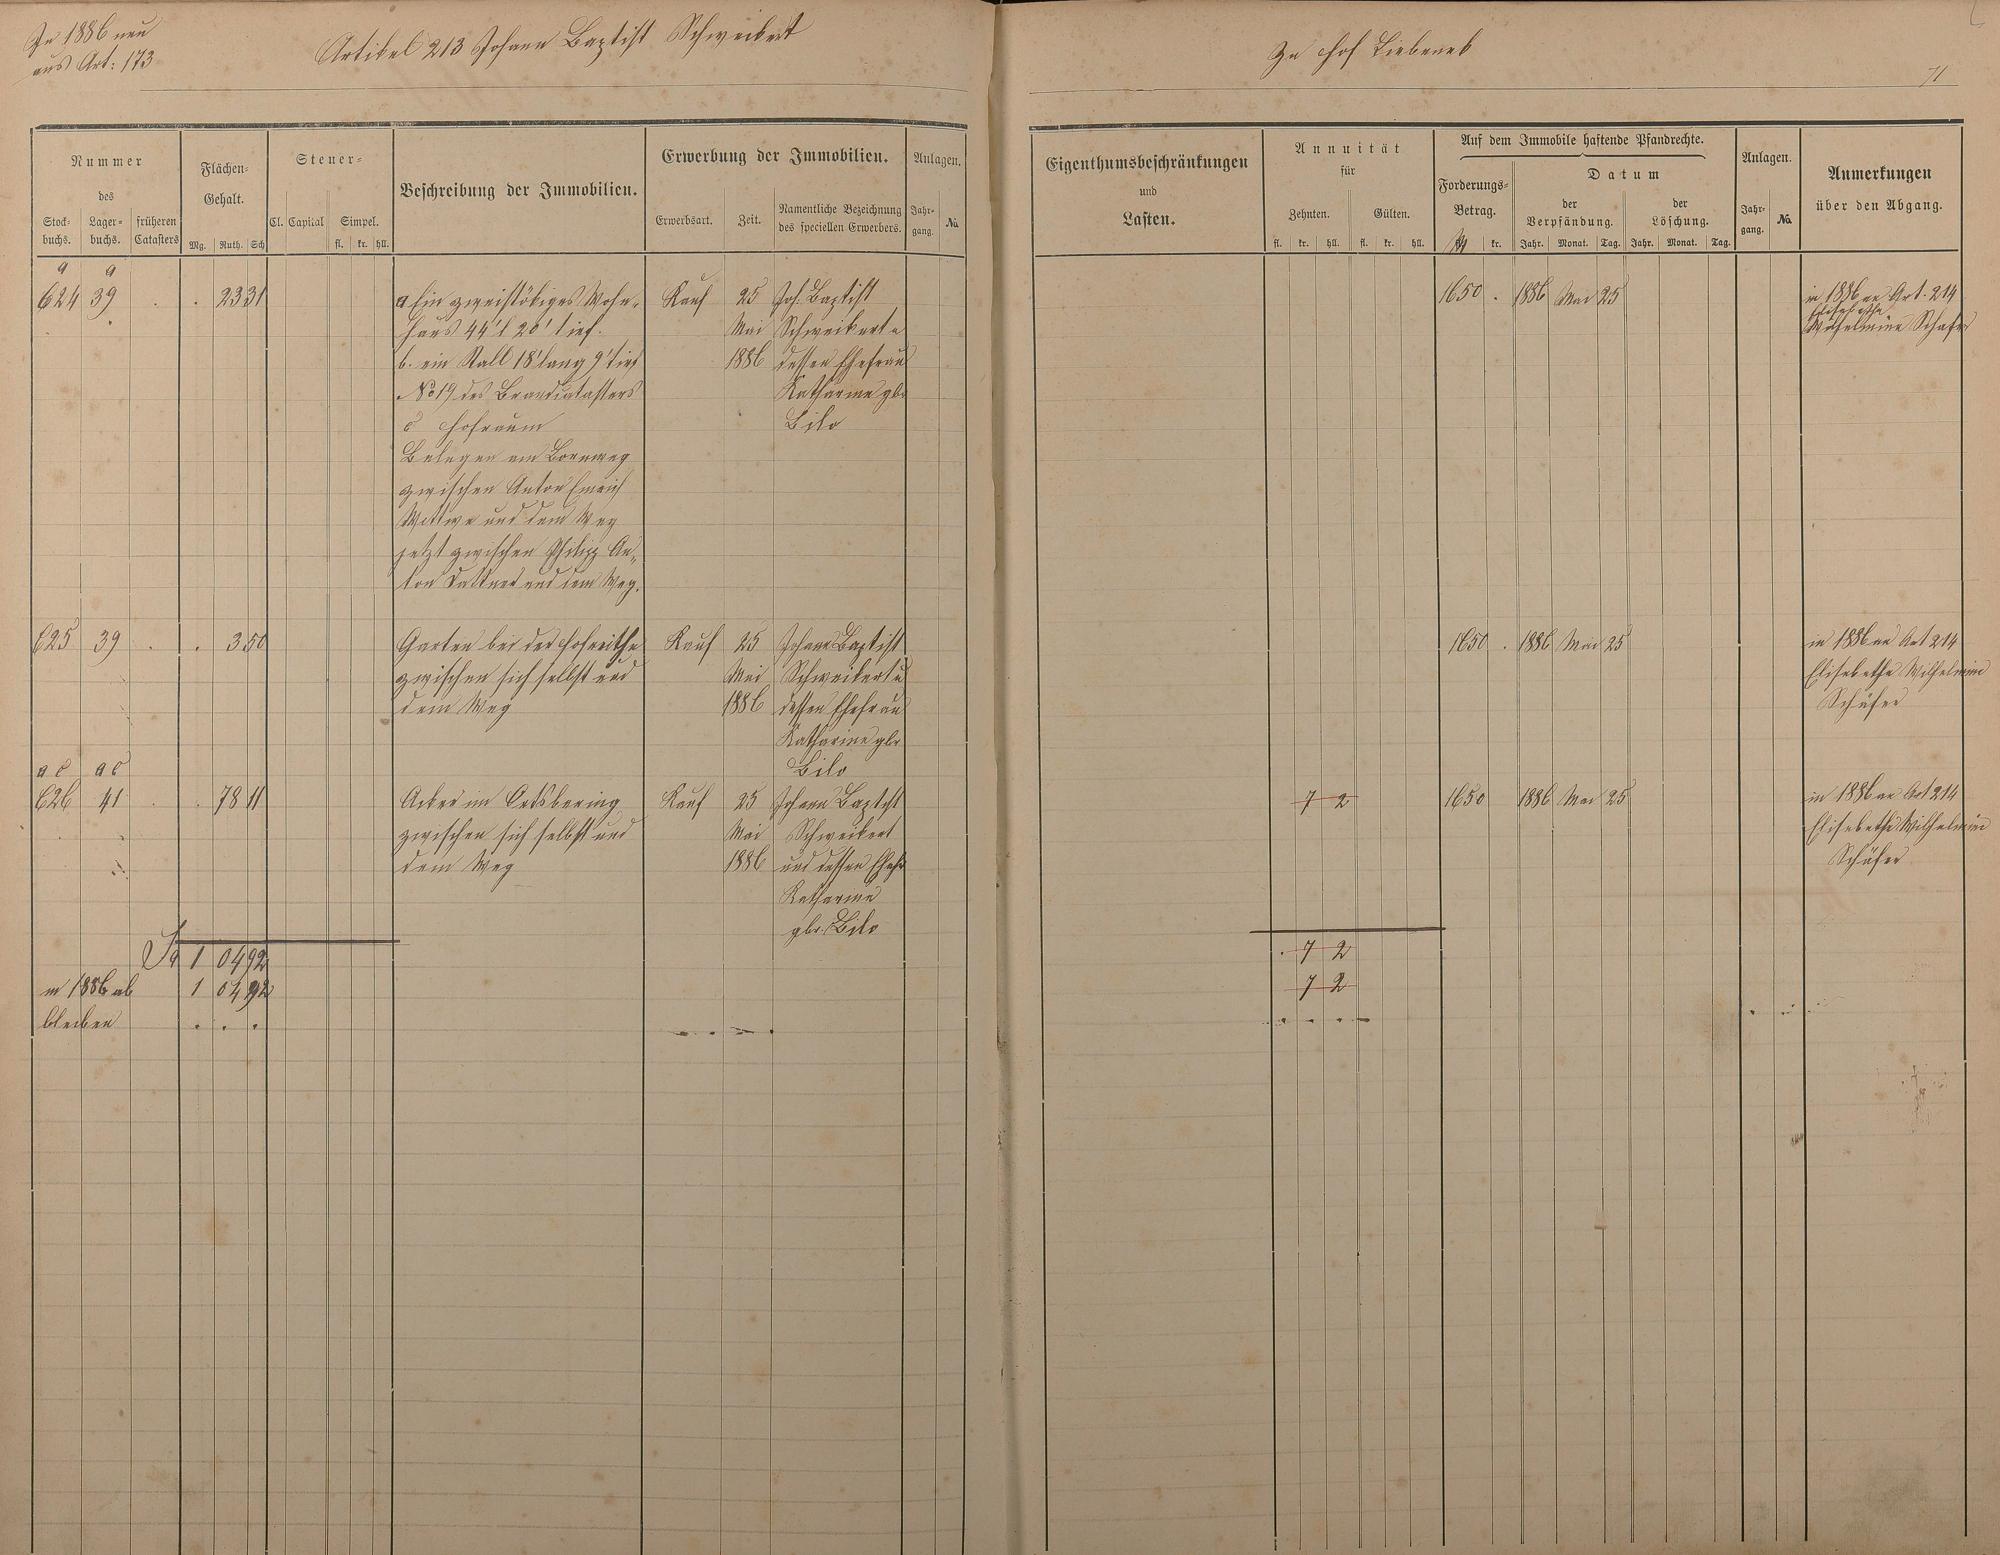 In 1886 neu
aus Art: 173
Artikel 213 Johann Baptist Schweikert
Zu Hof Liebeneck
71
Nummer
des
Stock-
buchs.
Lager-
buchs.
früheren
Catasters
Flächen-
Gehalt.
Mg. Ruth. Sch
Steuer-
Cl. Capital Simpel.
fl. kr. hll.
Beschreibung der Immobilien.
Erwerbung der Immobilien.
Erwerbsart. Zeit.
Namentliche Bezeichnung
des speciellen Erwerbers.
Anlagen.
Jahr-
gang.
No.
Eigenthumsbeschränkungen
und
Lasten.
Annuität
für
Zehnten. Gülten.
fl. kr. hll. fl. kr. hll.
Auf dem Immobile haftende Pfandrechte.
Forderungs-
Betrag.
M kr.
Datum
der
Verpfändung.
der
Löschung.
Jahr. Monat. Tag. Jahr. Monat. Tag.
Anlagen.
Jahr-
gang.
No.
Anmerkungen
über den Abgang.
a a
624 39 . . 23 31
a Ein zweistökiges Wohn-
haus 44' l 20' tief.
b. ein Stall 18' lang 9' tief
No 19 des Brandcatasters
c Hofraum
Belegen am Bornweg
zwischen Anton Emrich
Wittwe und dem Weg
jetzt zwischen Philipp An-
ton Dattner und dem Weg.
Kauf
25
Mai
1886
Joh. Baptist
Schweikert u
dessen Ehefrau
Katharine gbr
Bilo
1650 . 1886 Mai 25
in 1886 an Art. 214
Elisabetha
Wilhelmine Schäfer
625 39 . . 3 50
Garten bei der Hofreithe
zwischen sich selbst und
dem Weg
Kauf
25
Mai
1886
Johann Baptist
Schweikert u
dessen Ehefrau
Katharine gbr
Bilo
1650 . 1886 Mai 25
in 1886 an Art 214
Elisabetha Wilhelmine
Schäfer
a c a c
626 41 . . 78 11
Acker im Ortsbering
zwischen sich selbst und
dem Weg
Kauf
25
Mai
1886
Johann Baptist
Schweikert
und dessen Ehefr
Katharine
gbr. Bilo
7 2
1650 1886 Mai 25
in 1886 an Art 214
Elisabetha Wilhelmine
Schäfer
Sa 1 04 92
. 7 2
in 1886 ab 1 04 92
7 2
bleiben . . .
. . . .